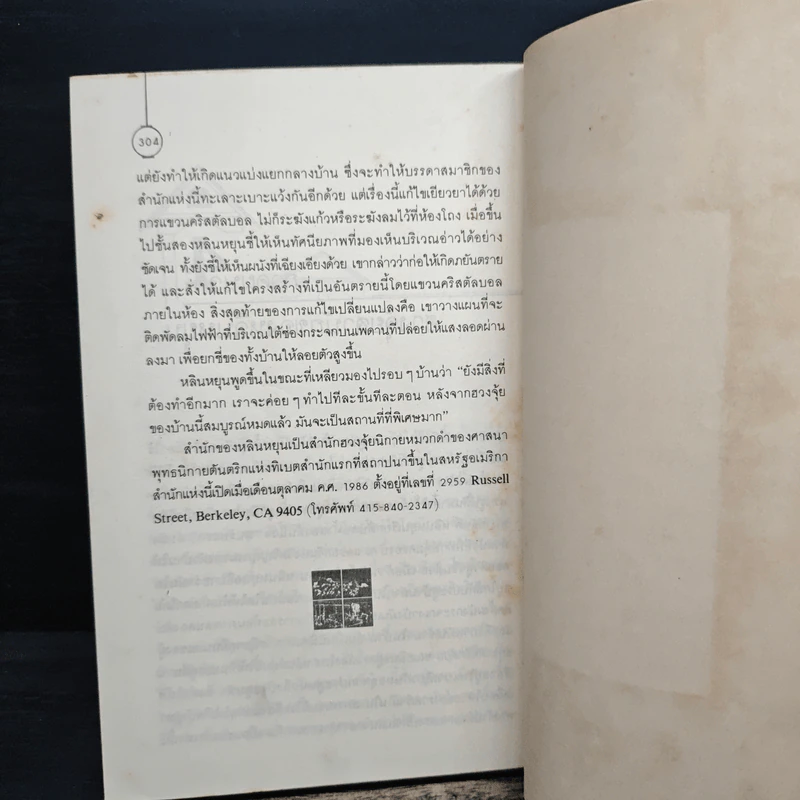 304
แต่ยังทำให้เกิดแนวแบ่งแยกกลางบ้าน ซึ่งจะทำให้บรรดาสมาชิกของ
สำนักแห่งนี้ทะเลาะเบาะแว้งกันอีกด้วย แต่เรื่องนี้แก้ไขเยียวยาได้ด้วย
การแขวนคริสตัลบอล ไม่ก็ระฆังแก้วหรือระฆังลมไว้ที่ห้องโถง เมื่อขึ้น
ไปชั้นสองหลินหยุนชี้ให้เห็นทัศนียภาพที่มองเห็นบริเวณอ่าวได้อย่าง
ชัดเจน ทั้งยังชี้ให้เห็นผนังที่เฉียงเอียงด้วย เขากล่าวว่าก่อให้เกิดภยันตราย
ได้ และสั่งให้แก้ไขโครงสร้างที่เป็นอันตรายนี้โดยแขวนคริสตัลบอล
ภายในห้อง สิ่งสุดท้ายของการแก้ไขเปลี่ยนแปลงคือ เขาวางแผนที่จะ
ติดพัดลมไฟฟ้าที่บริเวณใต้ช่องกระจกบนเพดานที่ปล่อยให้แสงลอดผ่าน
ลงมา เพื่อยกชี่ของทั้งบ้านให้ลอยตัวสูงขึ้น
หลินหยุนพูดขึ้นในขณะที่เหลียวมองไปรอบๆ บ้านว่า “ยังมีสิ่งที่
ต้องทำอีกมาก เราจะค่อยๆ ทำไปทีละขั้นทีละตอน หลังจากฮวงจุ้ย
ของบ้านนี้สมบูรณ์หมดแล้ว มันจะเป็นสถานที่ที่พิเศษมาก”
สำนักของหลินหยุนเป็นสำนักฮวงจุ้ยนิกายหมวกดำของศาสนา
พุทธนิกายตันตริกแห่งทิเบตสำนักแรกที่สถาปนาขึ้นในสหรัฐอเมริกา
สำนักแห่งนี้เปิดเมื่อเดือนตุลาคม ค.ศ. 1986 ตั้งอยู่ที่เลขที่ 2959 Russell
Street, Berkeley, CA 9405 (โทรศัพท์ 415-840-2347)